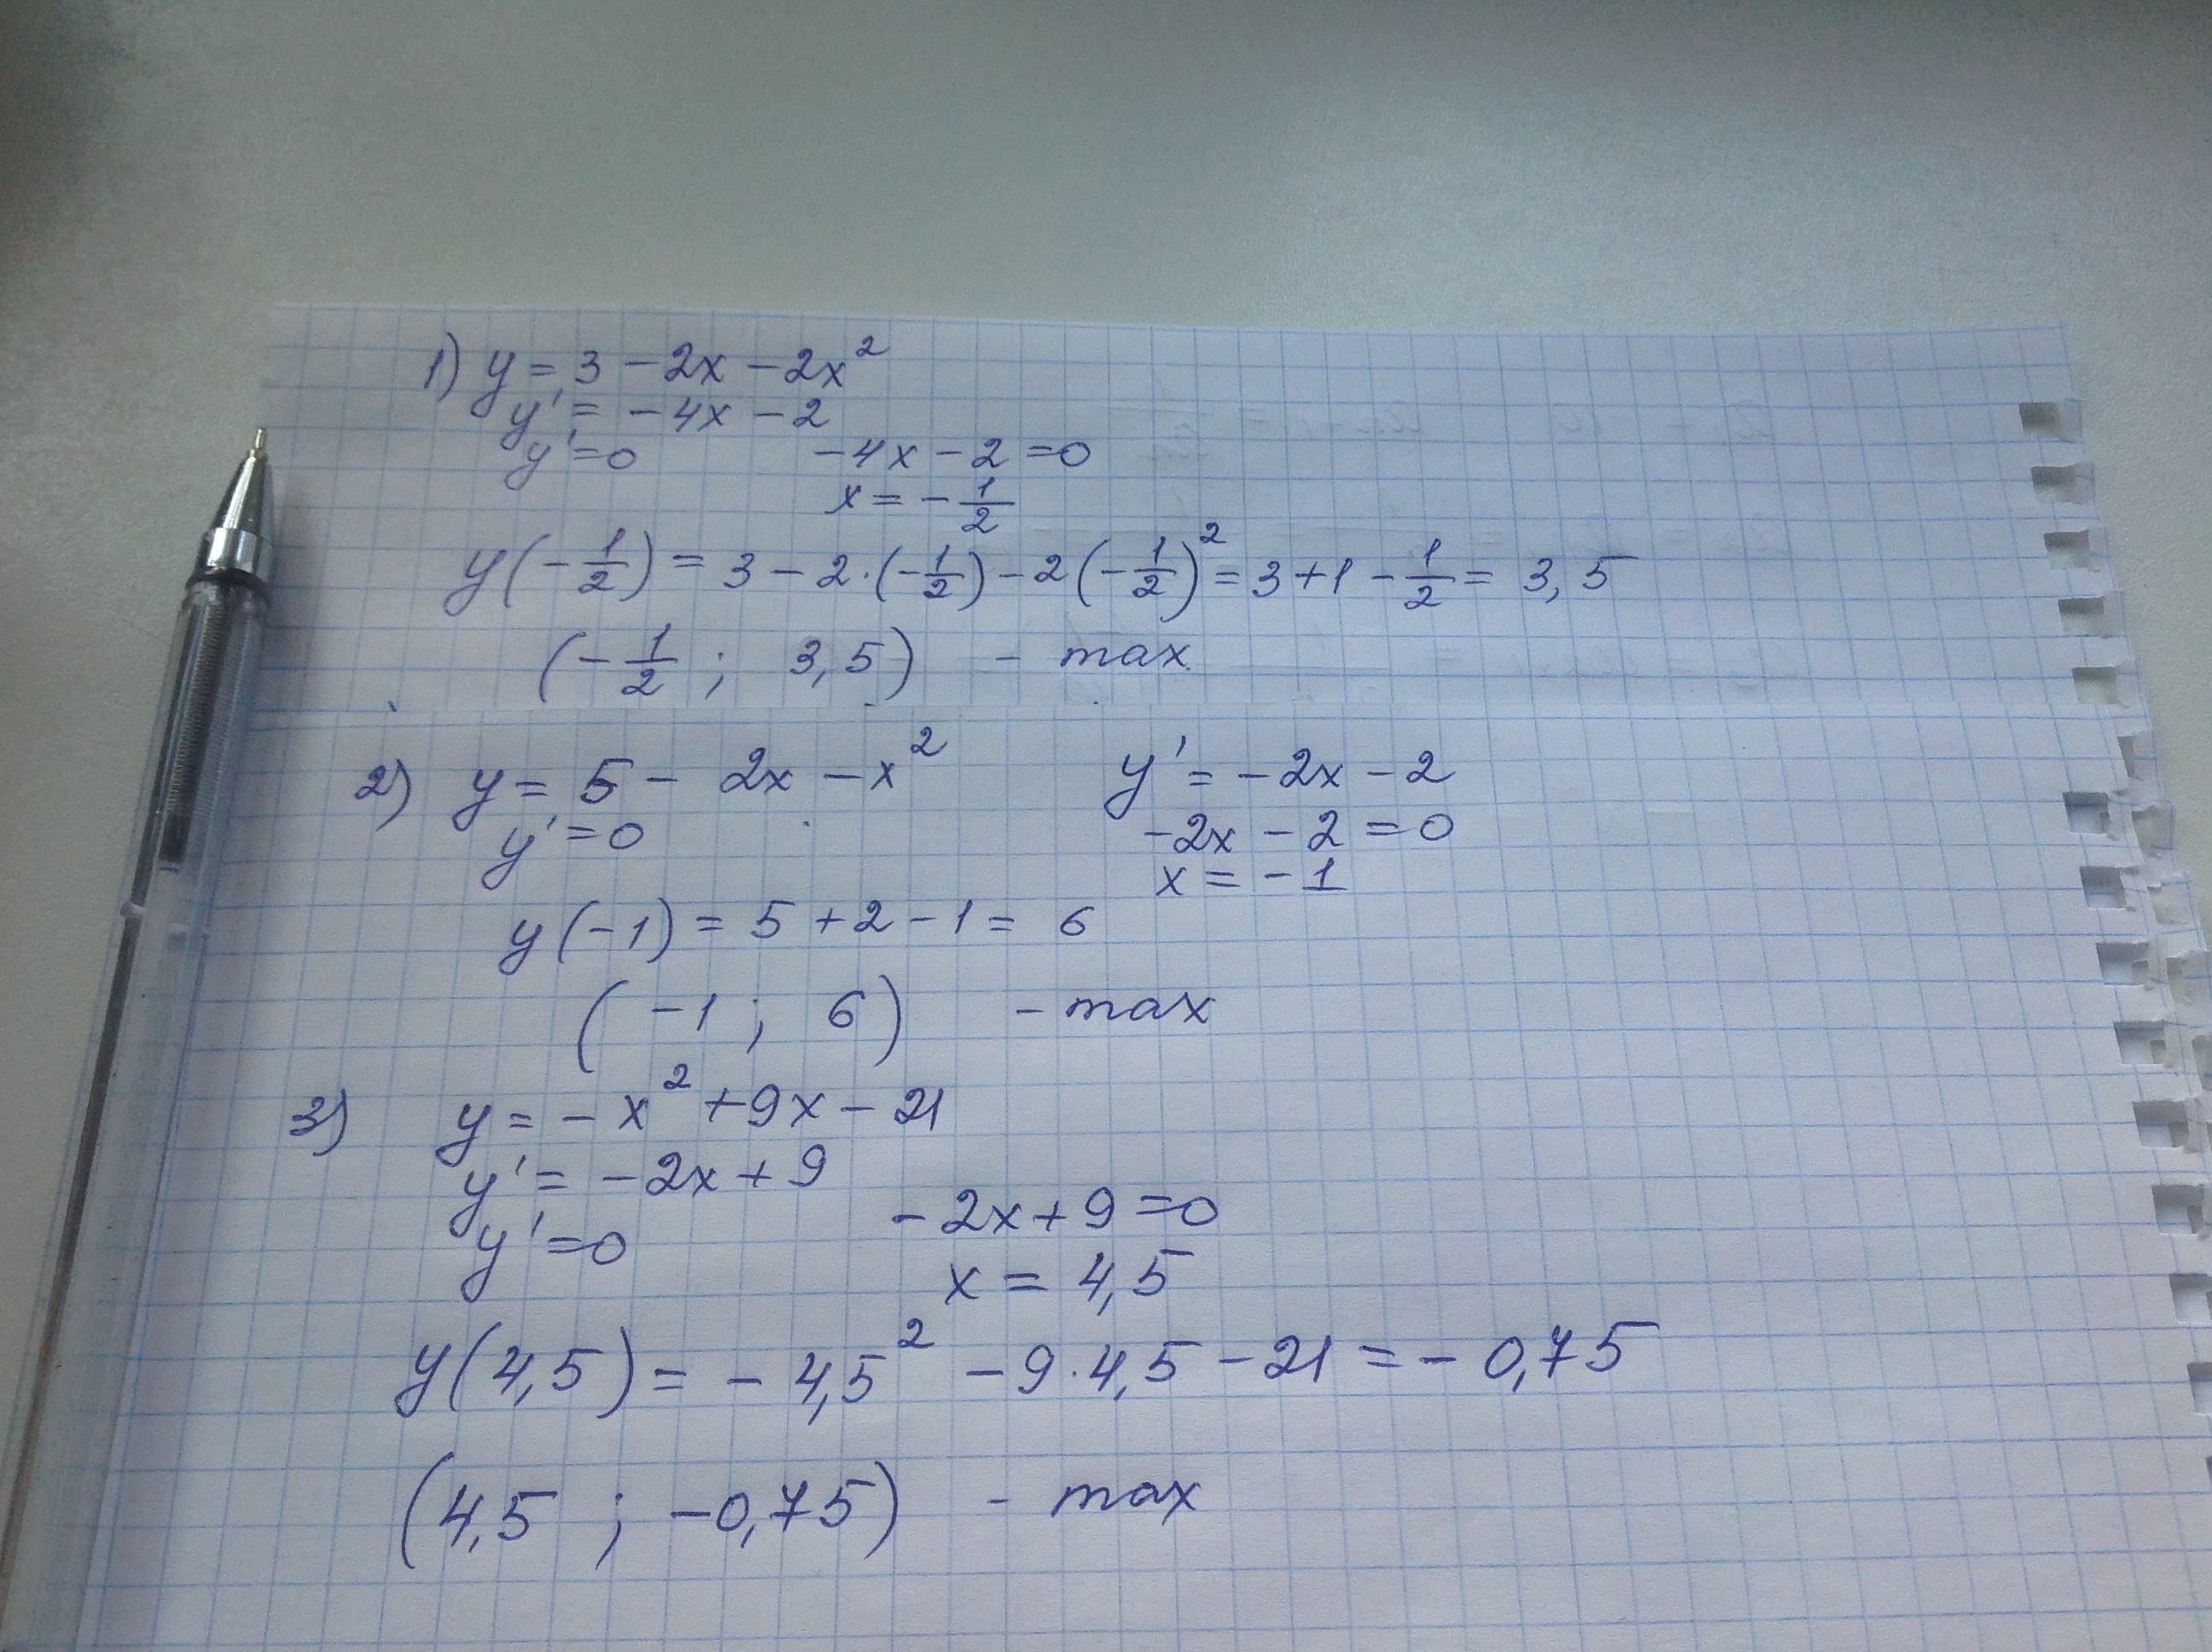 1) y = 3 - 2x - 2x²
y' = - 4x - 2
y' = 0 - 4x - 2 = 0
x = - 1/2
y(- 1/2) = 3 - 2·(- 1/2) - 2(- 1/2)² = 3 + 1 - 1/2 = 3,5
(- 1/2 ; 3,5) - max
2) y = 5 - 2x - x² y' = - 2x - 2
y' = 0 - 2x - 2 = 0
x = - 1
y(-1) = 5 + 2 - 1 = 6
(-1 ; 6) - max
3) y = - x² + 9x - 21
y' = - 2x + 9
y' = 0 - 2x + 9 = 0
x = 4,5
y(4,5) = - 4,5² - 9·4,5 - 21 = - 0,75
(4,5 ; -0,75) - max